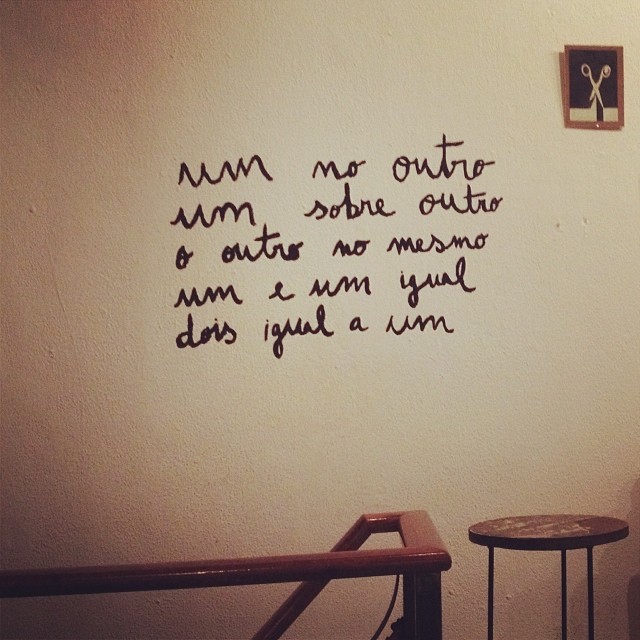 um no outro
um sobre outro
o outro no mesmo
um e um igual
dois igual a um